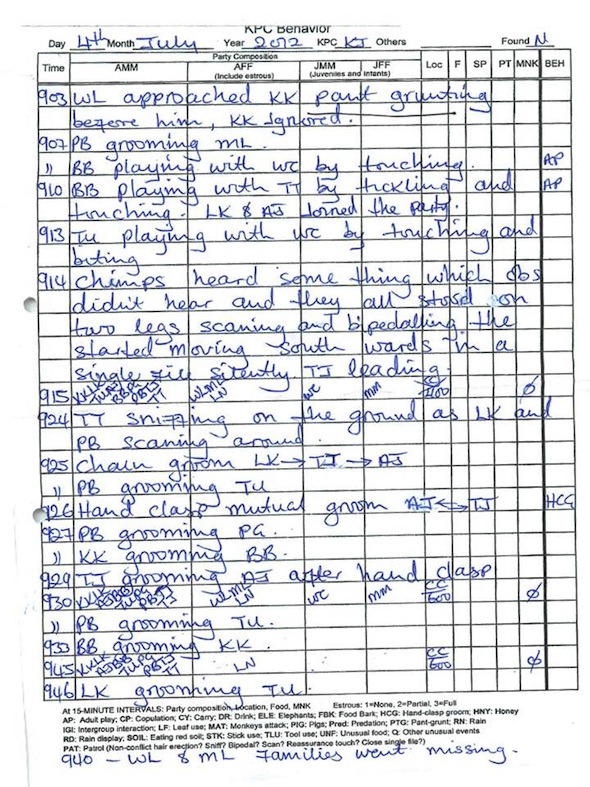 KPC Behavior
Day 4th Month July Year 2012 KPC KJ Others Found N
Party Composition
Time AMM AFF JMM JFF Loc F SP PT MNK BEH
(Include estrous) (Juveniles and Infants)
903 WL approached KK pant grunting
before him, KK ignored.
907 PB grooming ML.
" BB playing with WC by touching. AP
910 BB playing with TT by tickling and AP
touching. LK & AJ Joined the party.
913 TU playing with WC by touching and
biting
914 Chimps heard some thing which obs
didn't hear and they all stood on
two legs scaning and bipedalling. the
started moving South wards in a
single file silently. TJ leading.
915 WLML LN WC MM Ø
924 TT sniffing on the ground as LK and
PB scaning around.
925 Chain groom LK → TJ → AJ
" PB grooming TU
926 Hand clasp mutual groom AJ ↔ TJ HCG
927 PB grooming PG.
" KK grooming BB.
929 TJ grooming AJ after hand clasp
930 WLML LN WC MM CC/600 Ø
" PB grooming TU.
933 BB grooming KK.
945 LN CC/600 Ø
946 LK grooming TU
At 15-MINUTE INTERVALS: Party composition, Location, Food, MNK Estrous: 1=None, 2=Partial, 3=Full
AP: Adult play; CP: Copulation; CY: Carry; DR: Drink; ELE: Elephants; FBK: Food Bark; HCG: Hand-clasp groom; HNY: Honey
IGI: Intergroup interaction; LF: Leaf use; MAT: Monkeys attack; PIG: Pigs; Pred: Predation; PTG: Pant-grunt; RN: Rain
RD: Rain display; SOIL: Eating red soil; STK: Stick use; TLU: Tool use; UNF: Unusual food; Q: Other unusual events
PAT: Patrol (Non-conflict hair erection? Sniff? Bipedal? Scan? Reassurance touch? Close single file?)
940 - WL & ML Families went missing.